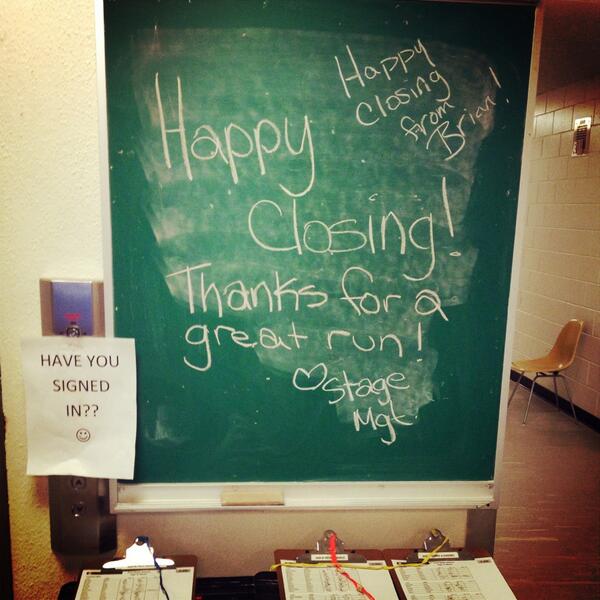 Happy
Closing!
Thanks for a
great run!
♡ Stage
Mgt
Happy
Closing
from
Brian!
HAVE YOU
SIGNED
IN??
☺